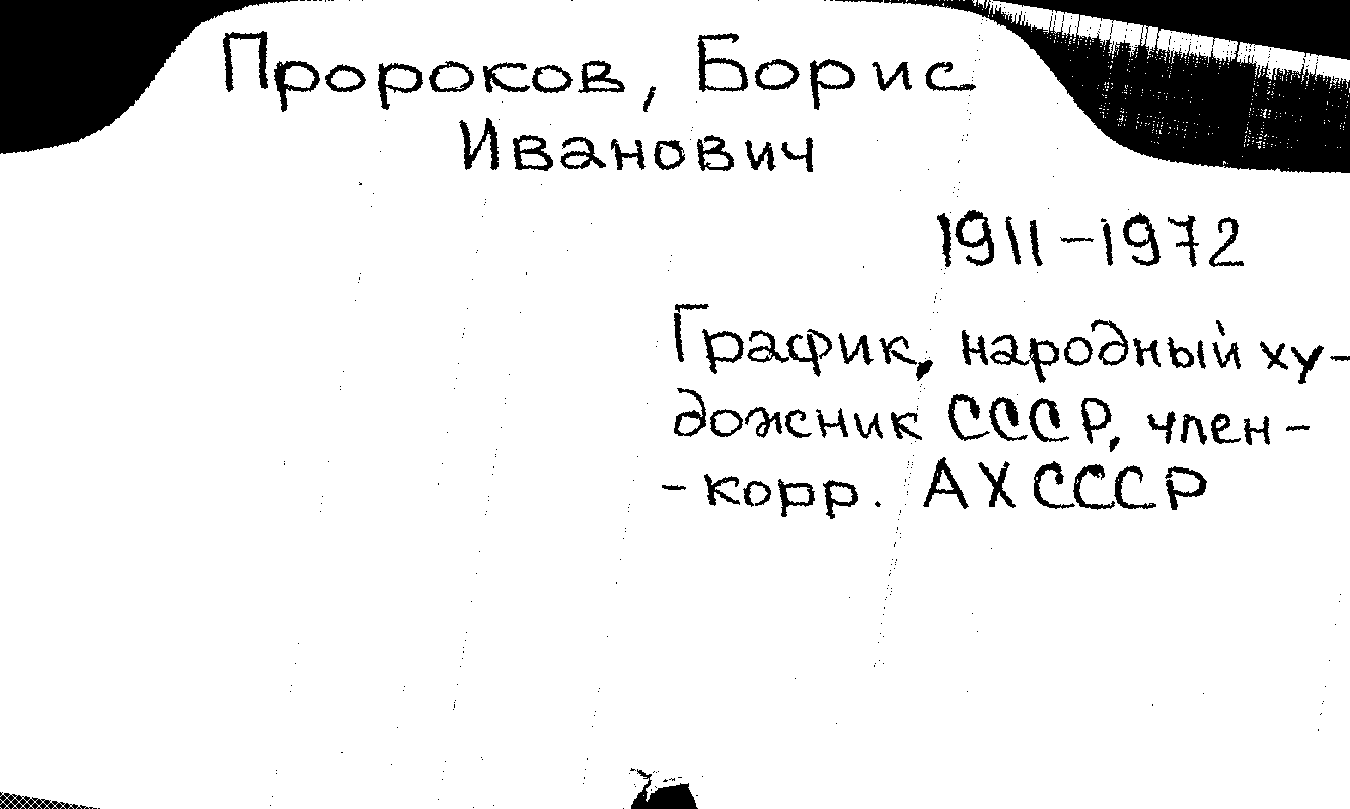 Пророков, Борис
Иванович
1911-1972
График, народный ху-
дожник СССР, член-
-корр. АХ СССР